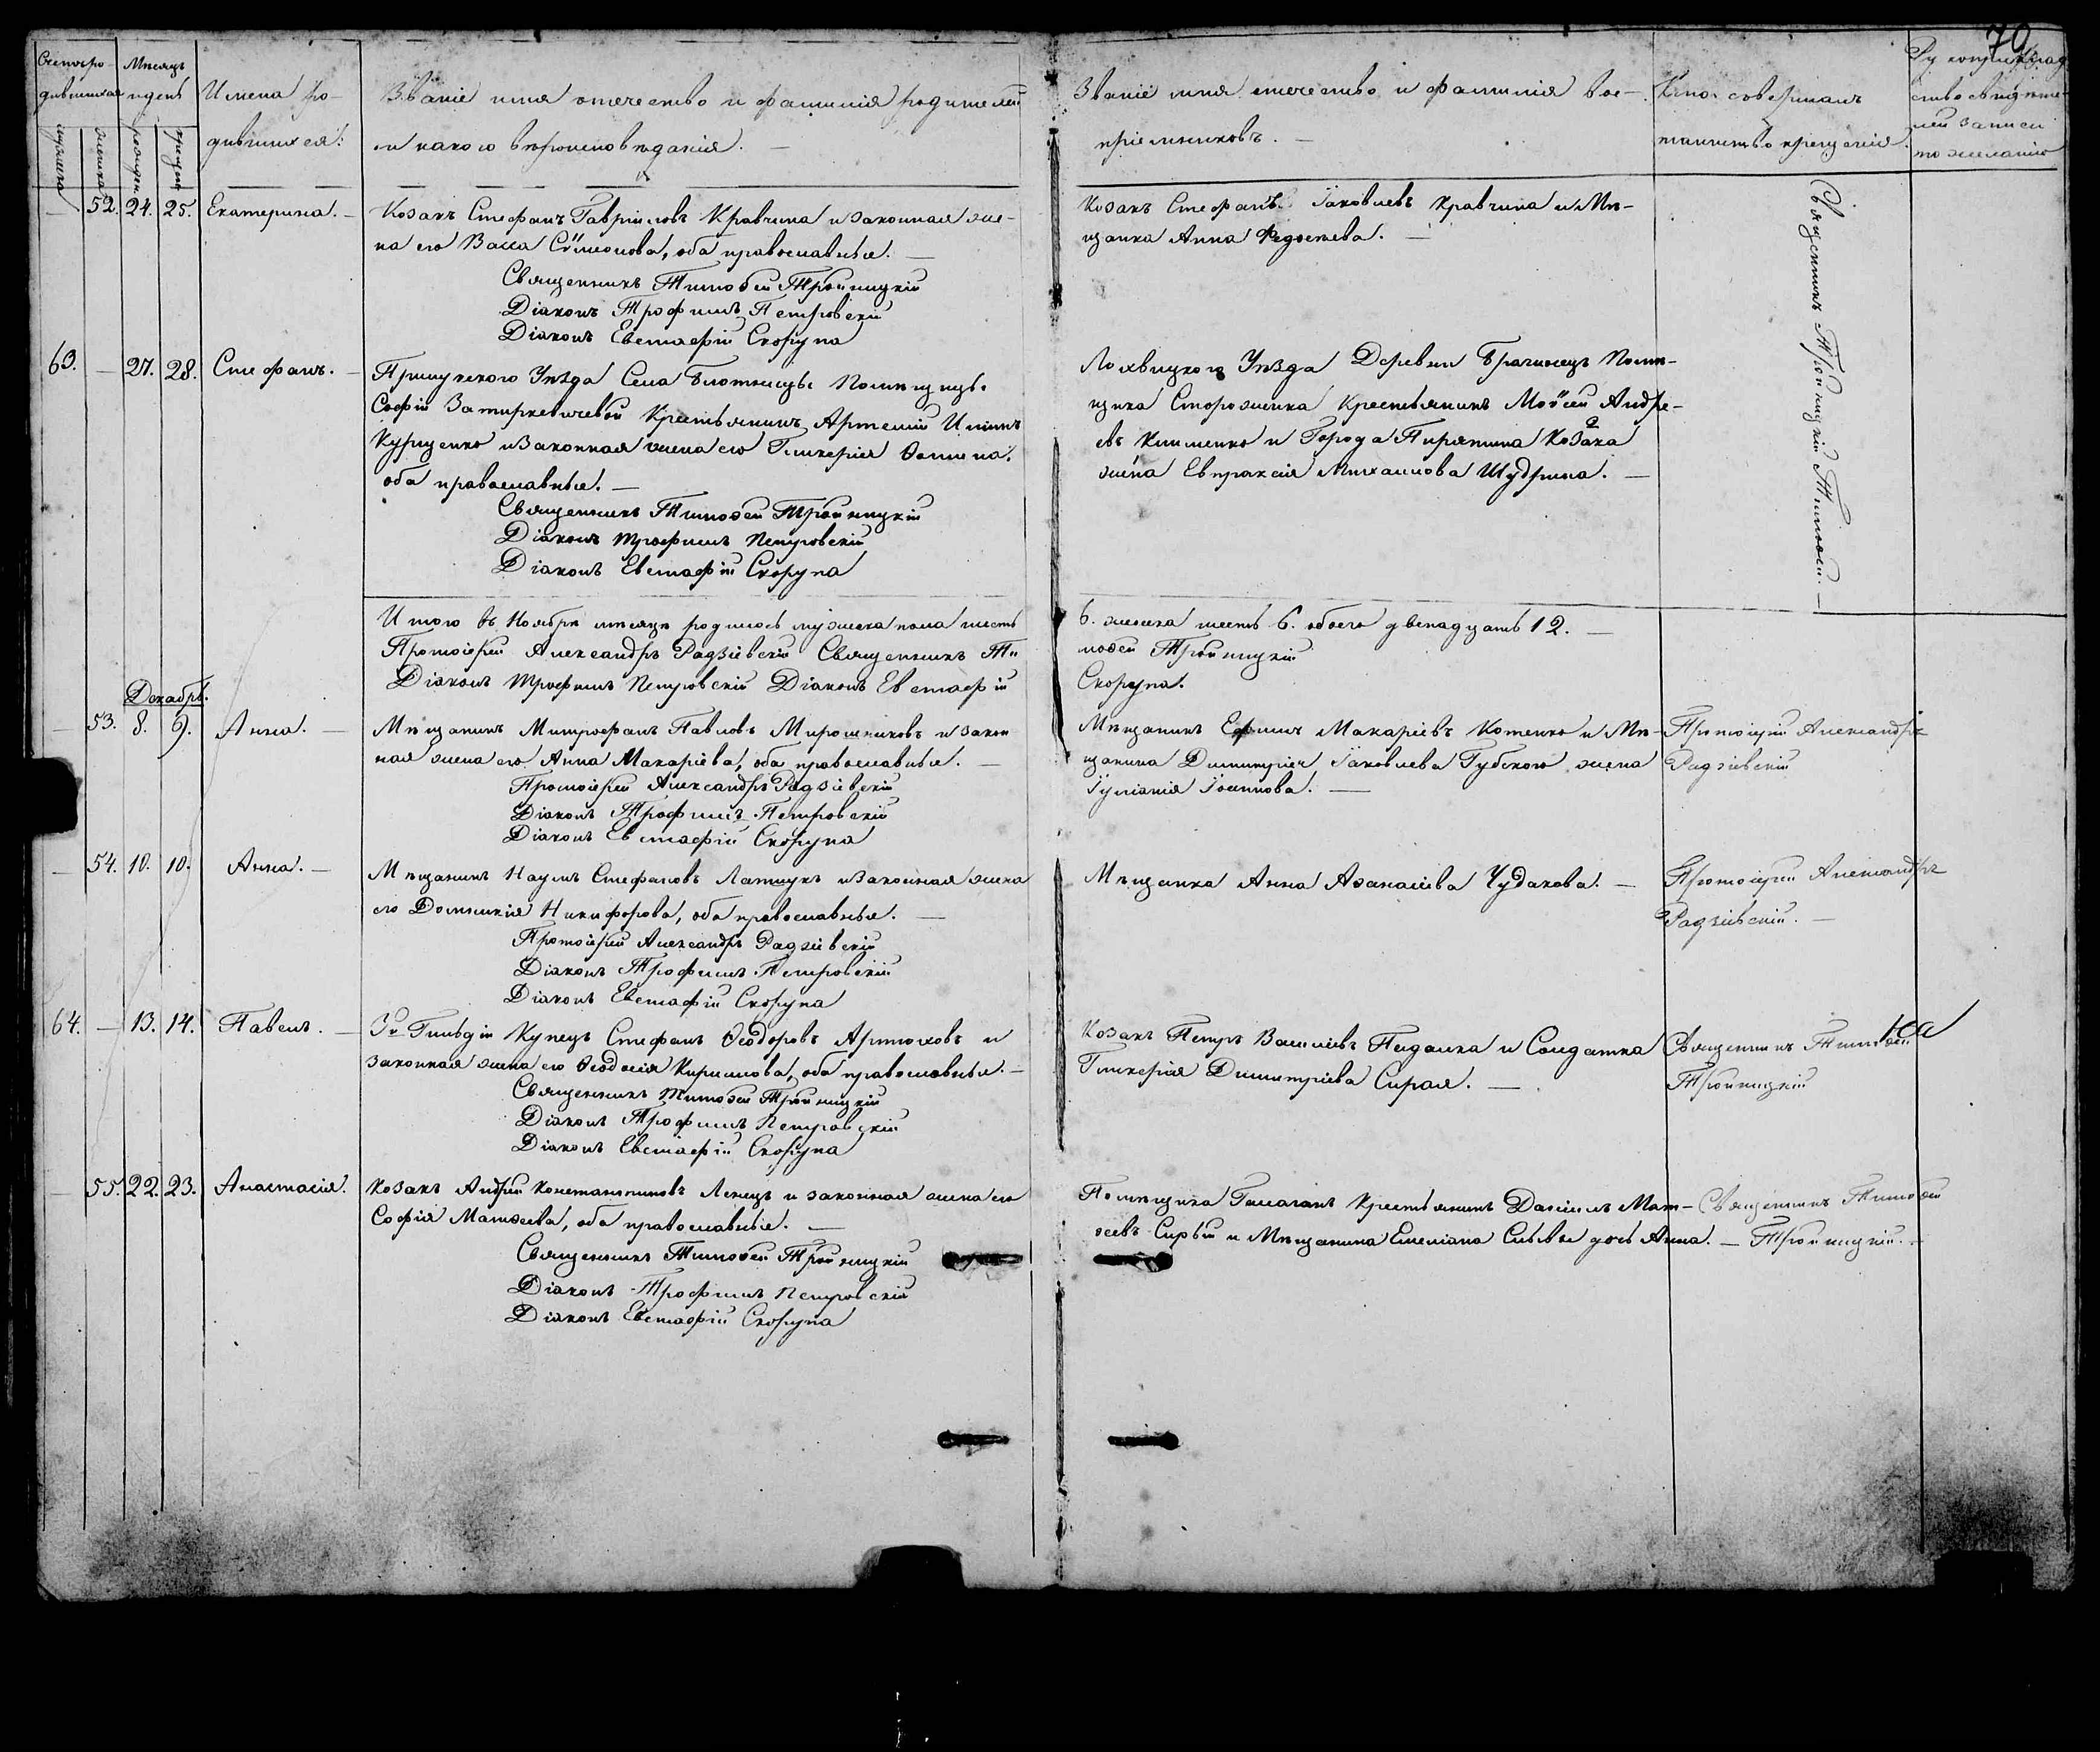 70
Счетъ ро-
дившихся
Мѣсяцъ
и день
Имена ро-
дившихся.
мужеска
женска
рожден.
крещен.
Званіе имя отечество и фамилія родителей
и какого вѣроисповѣданія. —
Званіе имя отечество и фамилія вос-
пріемниковъ. —
Кто совершалъ
таинство крещенія
Рукоприклад
ство свидѣте-
лей записи
по желанію
— 52. 24. 25. Екатерина. —
Козакъ Стефанъ Гавріиловъ Кравчина и законная же-
на его Васса Сѵмеонова, оба православные. —
Священникъ Тимоѳей Тройницкій
Діаконъ Трофимъ Петровскій
Діаконъ Евстафій Скорупа
Козакъ Стефанъ Іаковлевъ Кравчина и Мѣ-
щанка Анна Федотьева. —
Священникъ Тройницкій Тимоѳей. —
63. — 27. 28. Стефанъ. —
Прилуцкого Уѣзда Села Блотницы Помѣщицы
Софіи Затиркевичевой Крестьянинъ Артемій
Куруенко и Законная жена его Гликерія
оба православные. —
Священникъ Тимоѳей Тройницкій
Діаконъ Трофимъ Петровскій
Діаконъ Евстафій Скорупа
Лохвицкого Уѣзда Деревни Брагинецъ Помѣ-
щика Стороженка Крестьянинъ Моѵсей Андре-
евъ Клименко и Города Пирятина Козака
жена Евпраксія Михаилова Шудрина. —
Итого въ Ноябрѣ мѣсяцѣ родилось мужеска пола шесть
6. женска шесть 6. обоего двенадцать 12. —
Протоіерей Александръ Радзіевскій Священникъ Ти
моѳей Тройницкій
Діаконъ Трофимъ Петровскій Діаконъ Евстафій
Скорупа.
Декабрь.
— 53. 8. 9. Анна. —
Мѣщанинъ Митрофанъ Павловъ Мирошниковъ и закон
ная жена его Анна Макаріева, оба православные. —
Протоіерей Александръ Радзіевскій
Діаконъ Трофимъ Петровскій
Діаконъ Евстафій Скорупа
Мѣщанинъ Ефимъ Макаріевъ Котенко и Мѣ-
щанина Димитрія Іаковлева Губского жена
Іуліанія Іоаннова. —
Протоіерей Александръ
Радзіевскій
— 54. 10. 10. Анна. —
Мѣщанинъ Наумъ Стефановъ Латшукъ и Законная жена
его Домникія Никифорова, оба православные. —
Протоіерей Александръ Радзіевскій
Діаконъ Трофимъ Петровскій
Діаконъ Евстафій Скорупа
Мѣщанка Анна Аѳанасіева Чудакова. —
Протоіерей Александръ
Радзіевскій. —
64. — 13. 14. Павелъ. —
3й Гильдіи Купецъ Стефанъ Ѳеодоровъ Артюховъ и
законная жена его Ѳеодосія Кирилова, оба православные. —
Священникъ Тимоѳей Тройницкій
Діаконъ Трофимъ Петровскій
Діаконъ Евстафій Скорупа
Козакъ Петръ Василіевъ Пидалка и Солдатка
Гликерія Димитріева Сирая. —
Священникъ Тимоѳей
Тройницкій
— 55. 22. 23. Анастасія.
Козакъ Андрей Константиновъ Ленецъ и законная жена его
Софія Матѳеева, оба православные. —
Священникъ Тимоѳей Тройницкій
Діаконъ Трофимъ Петровскій
Діаконъ Евстафій Скорупа
Помѣщика Галагана Крестьянинъ Даніилъ Мат-
ѳеевъ Сирый и Мѣщанина Емеліана Сивы дочь Анна. —
Священникъ Тимоѳей
Тройницкій. —